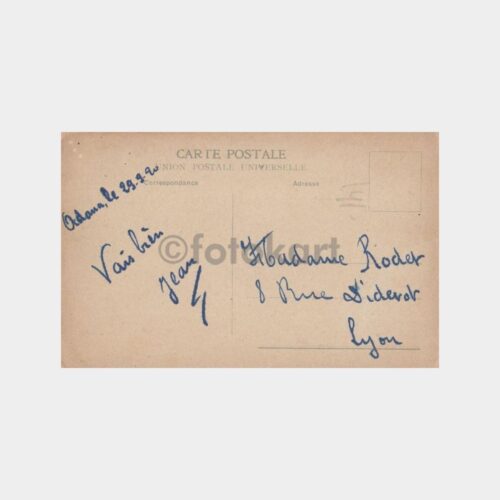 CARTE POSTALE
UNION POSTALE UNIVERSELLE
Correspondance
Adresse
Adana, le 29-3-20
Vais bien
Jean
©fotokart
Madame Rodet
8 Rue Diderot
Lyon